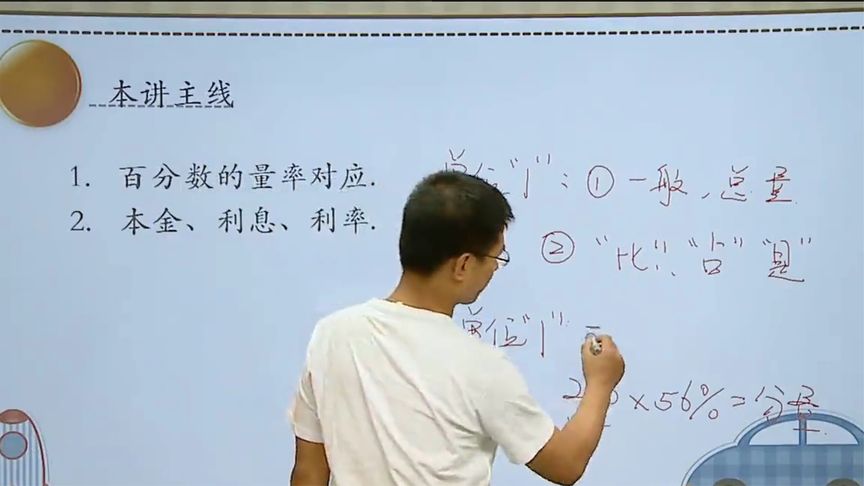 本讲主线
1. 百分数的量率对应.
2. 本金、利息、利率.
单位“1”：① 一般，总量
② “比”、“占”“是”
单位“1”
×56%=分量